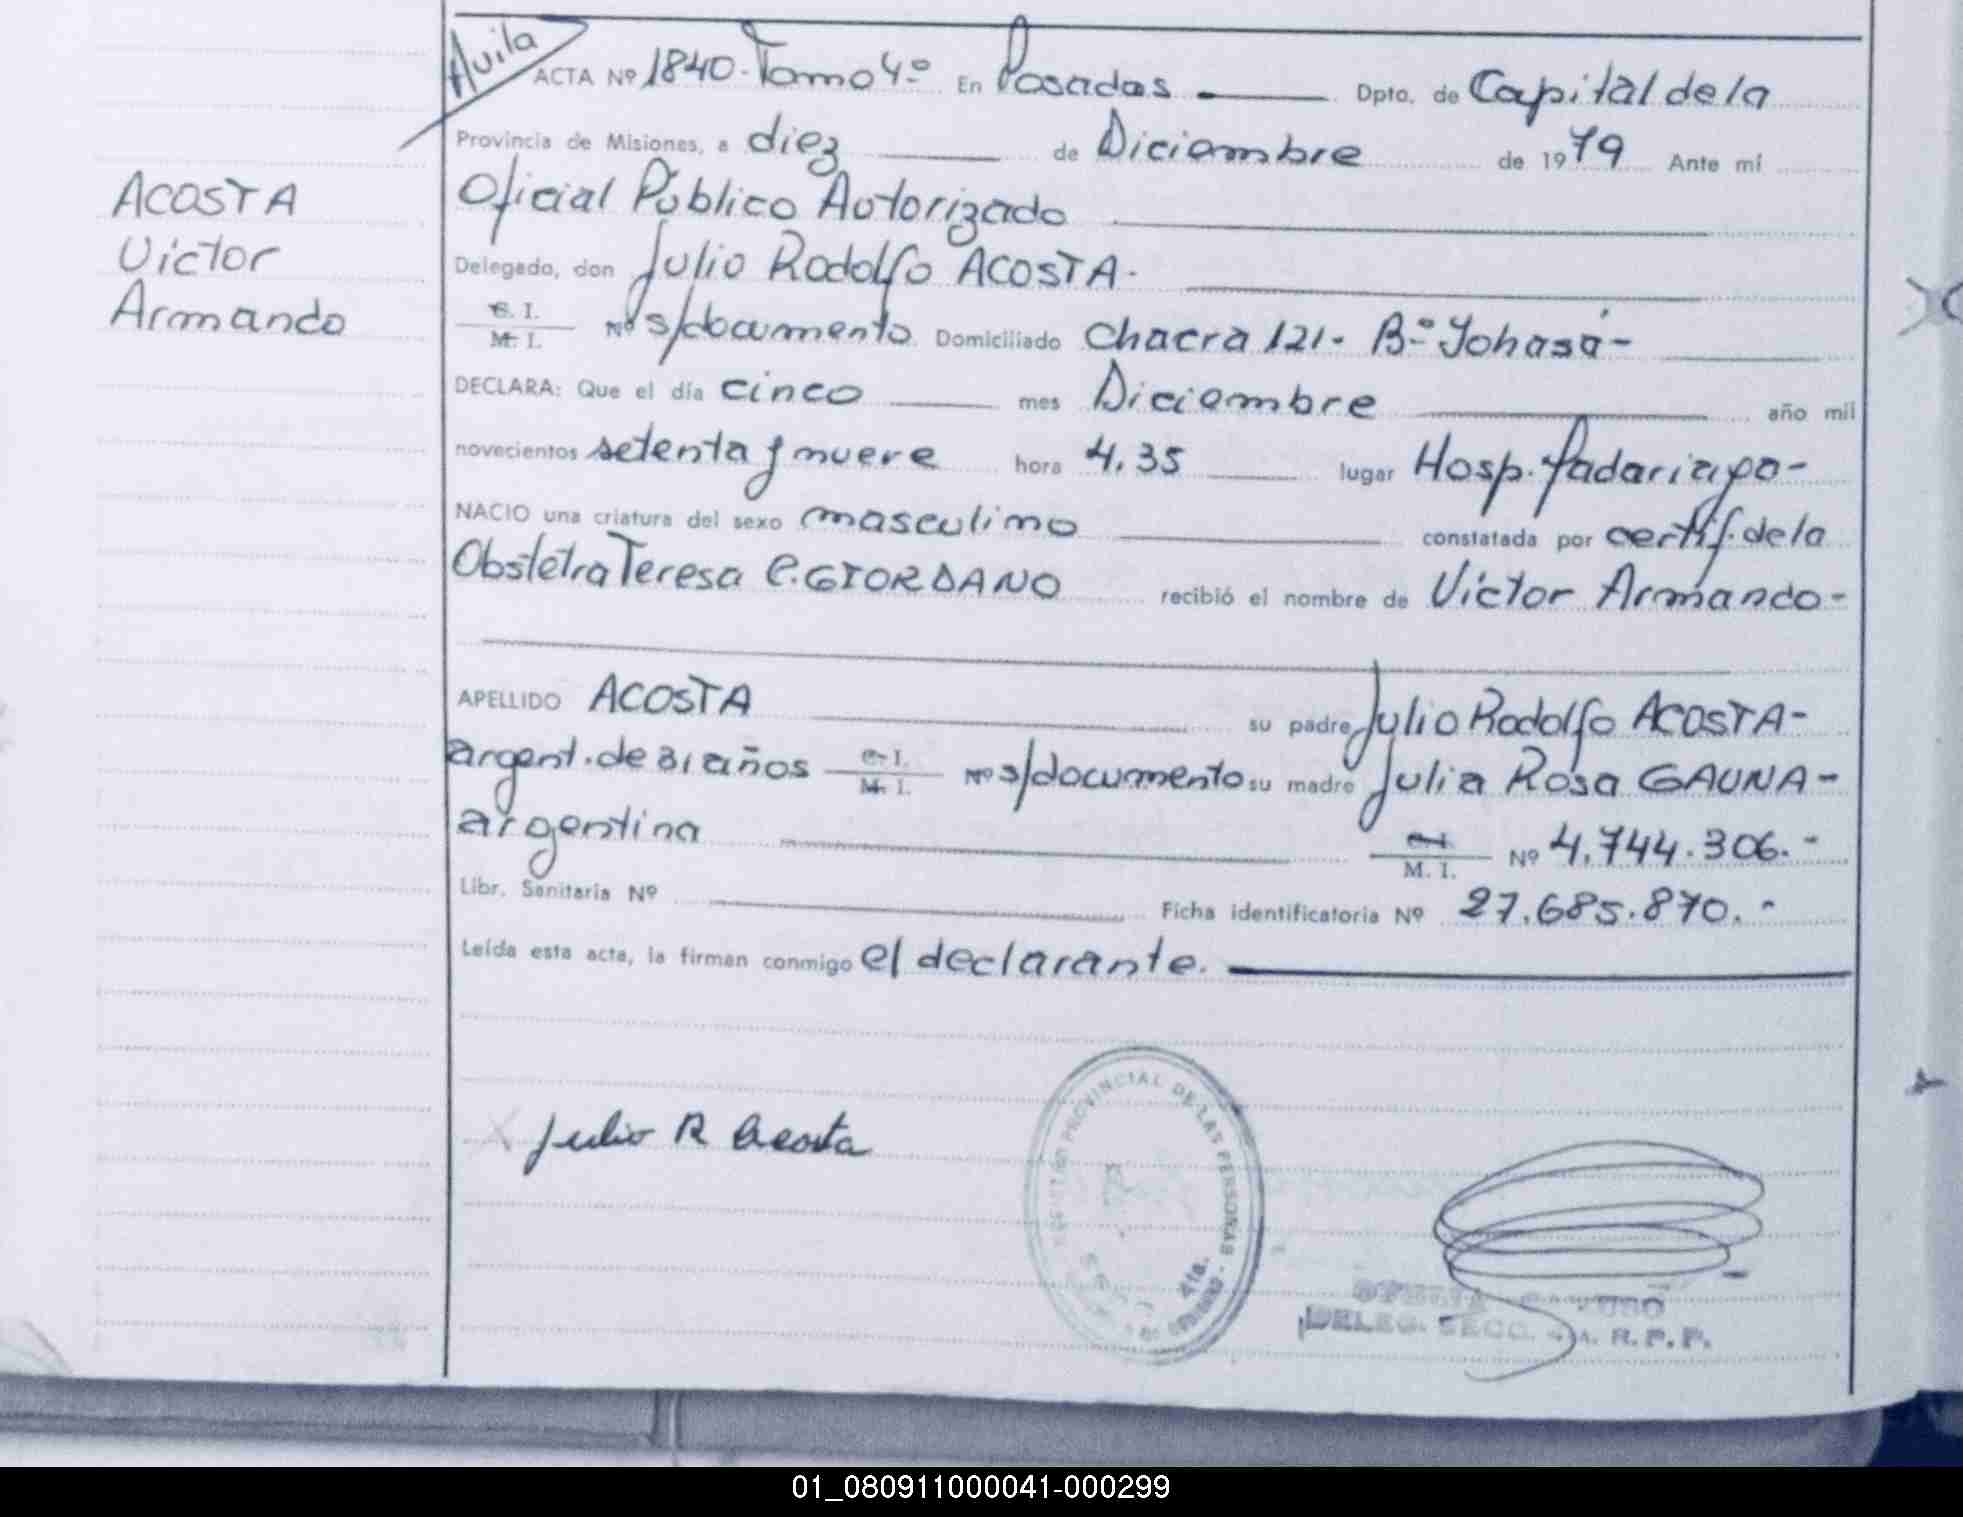 Avila
ACTA Nº 1840. Tomo 4º En Posadas Dpto. de Capital de la
Provincia de Misiones, a diez de Diciembre de 1979 Ante mí
Oficial Público Autorizado
Delegado, don Julio Rodolfo ACOSTA.
C. I.
M. I. Nº s/documento Domiciliado Chacra 121. Bº Yohasá-
DECLARA: Que el día cinco mes Diciembre año mil
novecientos setenta y nueve hora 4.35 lugar Hosp.
NACIO una criatura del sexo masculino constatada por certif. de la
Obstétra Teresa C. GIORDANO recibió el nombre de Victor Armando-
APELLIDO ACOSTA su padre Julio Rodolfo ACOSTA-
argent. de 31 años C. I. M. I. Nº s/documento su madre Julia Rosa GAUNA-
argentina C. I. M. I. Nº 4.744.306.-
Libr. Sanitaria Nº Ficha identificatoria Nº 27.685.870.-
Leída esta acta, la firman conmigo el declarante.
ACOSTA
Victor
Armando
Julio R Acosta
PROVINCIAL DE LAS PERSONAS
4ta.
DELEG. SECC. 4A. R. P. P.
01_080911000041-000299